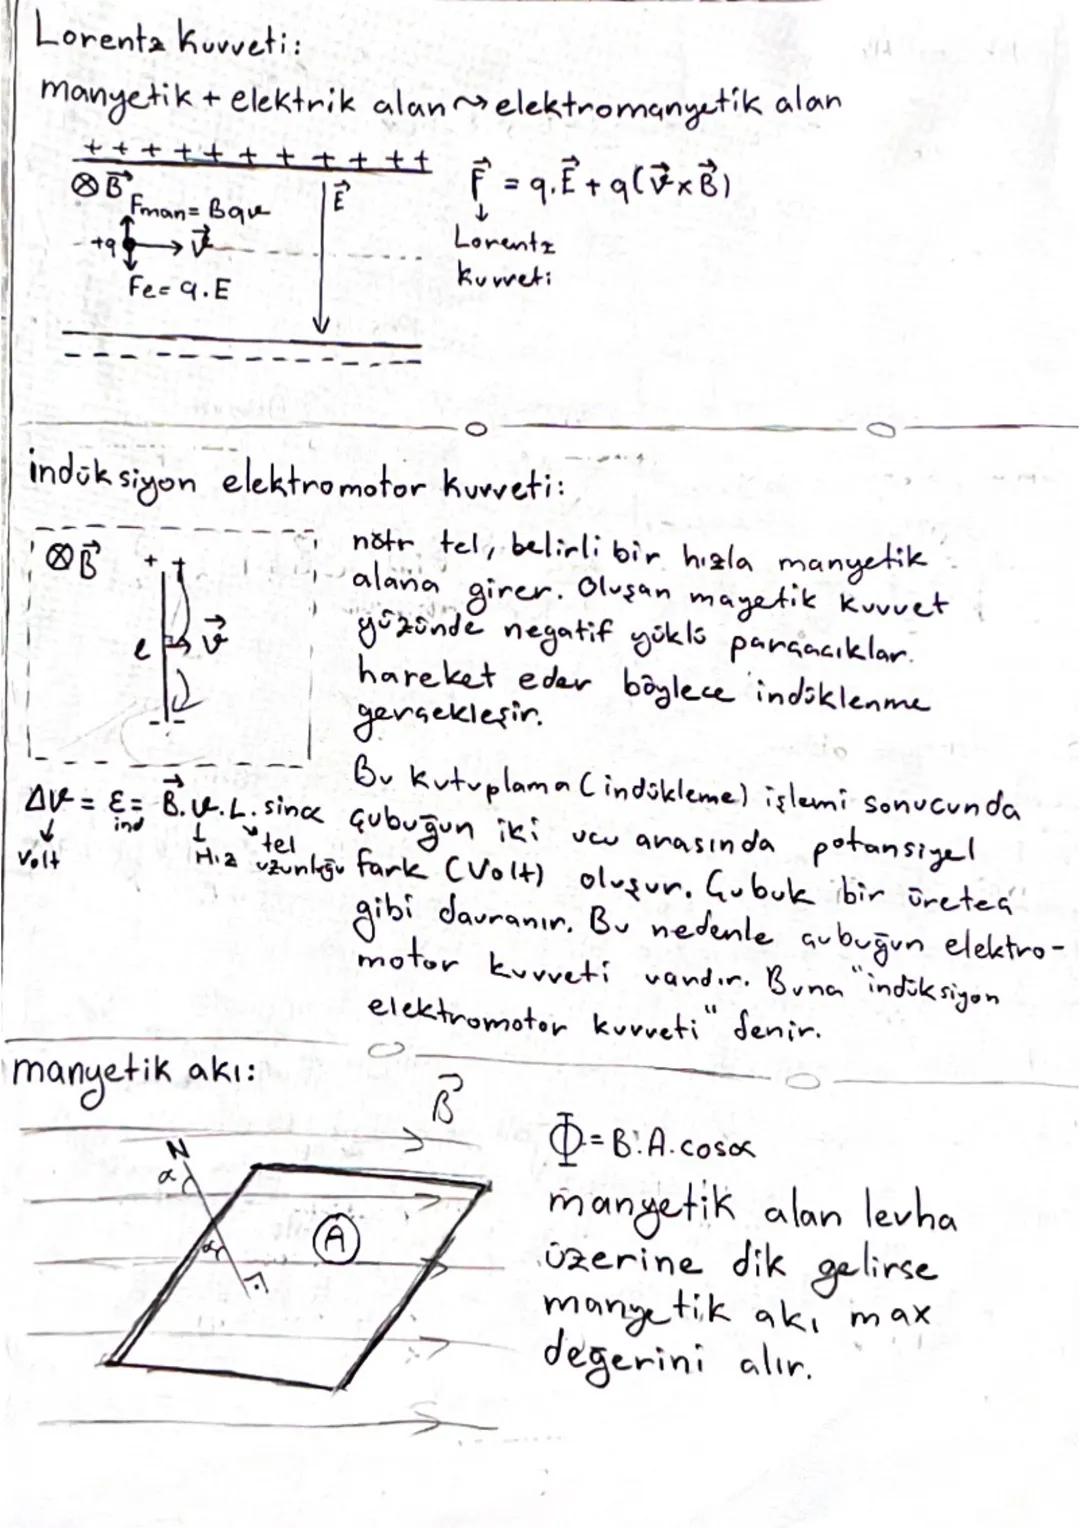 Lorentz kuvveti:
manyetik + elektrik alan ⤳ elektromanyetik alan
+ + + + + + + + + + +
⊗ B⃗
Fman = Bqv
E⃗
F⃗ = q.E⃗ + q(v⃗ x B⃗)
↓
+q → v⃗
Lorentz
kuvveti
Fe = q.E
- - - - - - - - - - - - -
indüksiyon elektromotor kuvveti:
nötr tel, belirli bir hızla manyetik
⊗ B⃗ + +
alana girer. Oluşan mayetik kuvvet
yüzünde negatif yüklü parçacıklar.
l v⃗
hareket eder böylece indüklenme
gerçekleşir.
- -
Bu kutuplama (indükleme) işlemi sonucunda
ΔV = Ɛind = B⃗.v.L.sinα
çubuğun iki ucu arasında potansiyel
Volt Hız tel uzunluğu
fark (Volt) oluşur. Çubuk bir üreteç
gibi davranır. Bu nedenle çubuğun elektro-
motor kuvveti vardır. Buna "indüksiyon
elektromotor kuvveti" denir.
manyetik akı:
B⃗
Φ = B.A.cosα
N
α
manyetik alan levha
A
α
üzerine dik gelirse
manyetik akı max
değerini alır.